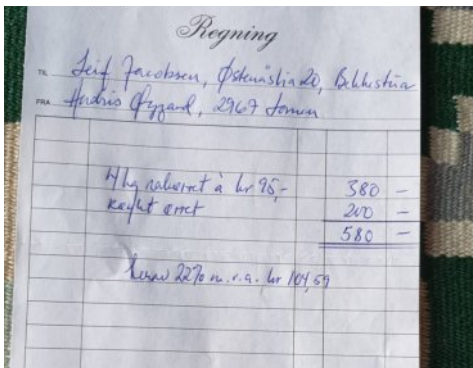 Regning
TIL Leif Jacobsen, Østenåslia 20, Bekkestua
FRA Andris Øygard, 2967 Lomen
4 kg rakørret à kr 95,- 380 -
røykt ørret 200 -
580 -
herav 22% m.v.a. kr 104,59